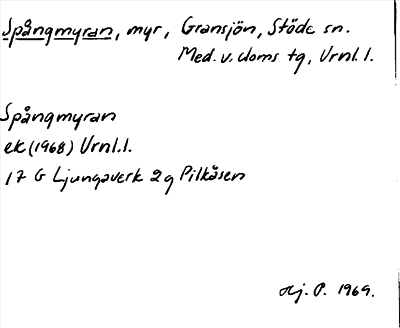 Spångmyran, myr, Gransjön, Stöde sn.
Med. v. doms tg, Urnl. l.
Spångmyran
ek (1968) Urnl. l.
17 G Ljungaverk 2g Pilkåsen
Hj. P. 1969.